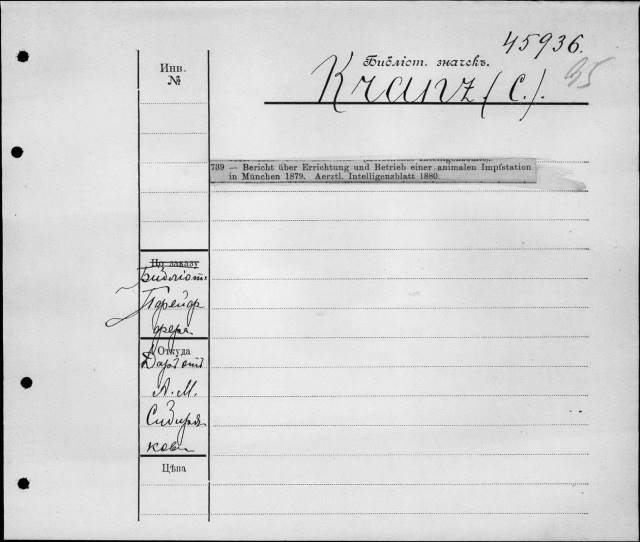 45936.
Библіот. значекъ.
95
Kranz (C.).
Инв.
№
739 — Bericht über Errichtung und Betrieb einer animalen Impfstation
in München 1879. Aerztl. Intelligenzblatt 1880.
По заказу
Библіот.
Пфейф
фера
Откуда
Даръ отъ
А. М.
Сибиря
кова
Цѣна